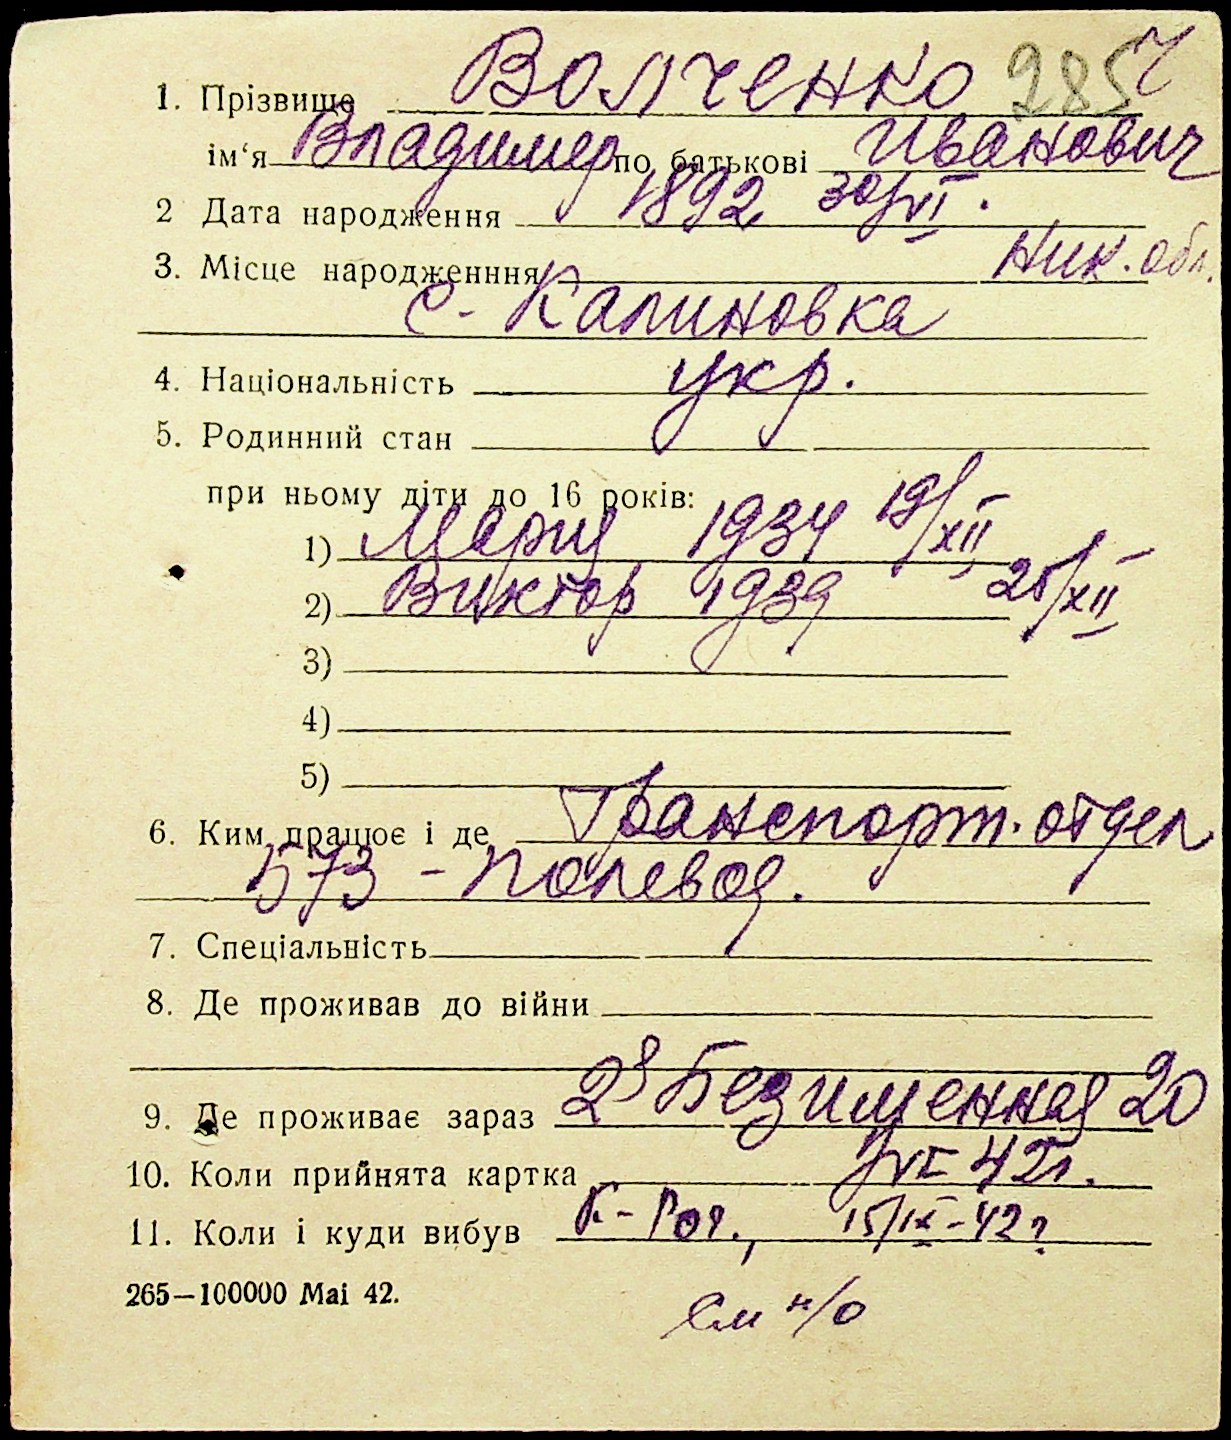 1. Прізвище Волченко 285 Ч
ім‘я Владимер по батькові Иванович
2 Дата народження 1892 30/VI.
3. Місце народженння Ник. обл.
с. Калиновка
4. Національність укр.
5. Родинний стан
при ньому діти до 16 років:
1) Мария 1934 19/XII
2) Виктор 1939 25/XII
3)
4)
5)
6. Ким працює і де Транспорт. отдел
573 - полевод.
7. Спеціальність
8. Де проживав до війни
9. Де проживає зараз 2я Безименная 20
10. Коли прийнята картка VI 42г.
11. Коли і куди вибув К-Рог., 15/IX-42г.
265—100000 Mai 42.
См н/о